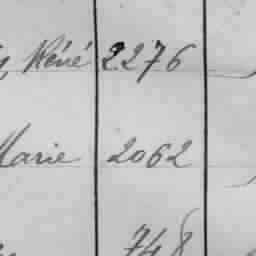 René 2276
Marie 2062
748